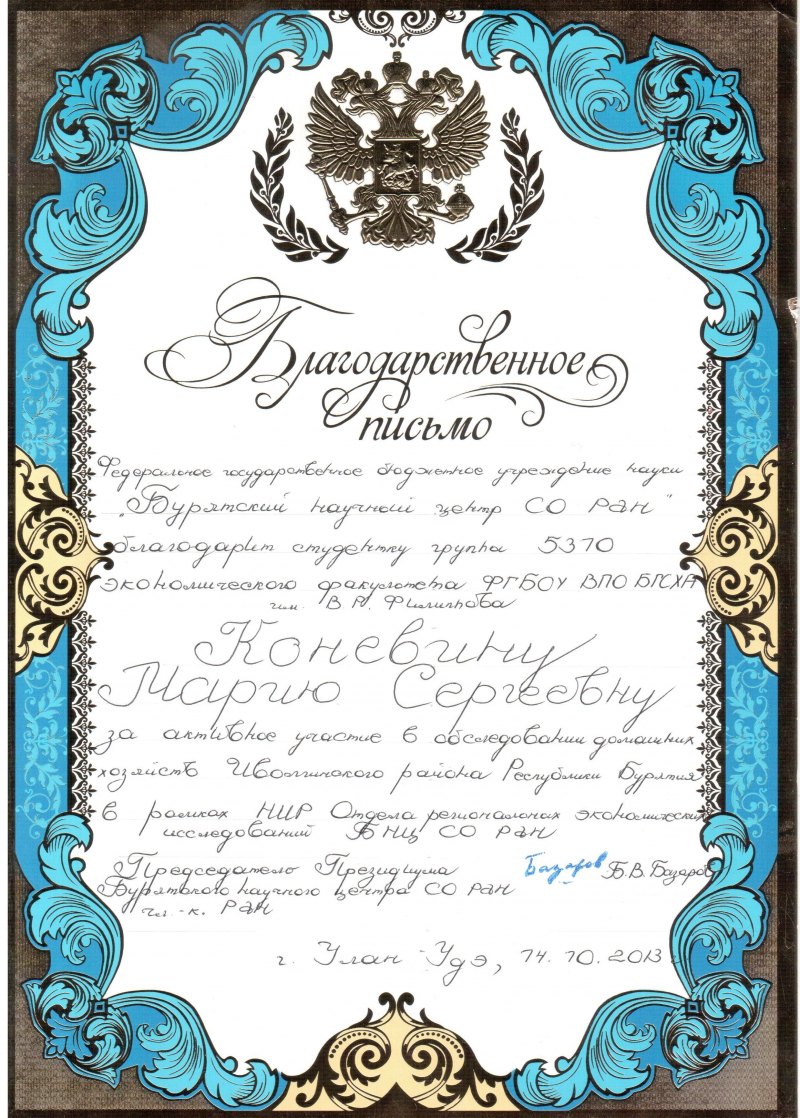 Благодарственное
письмо
Федеральное государственное бюджетное учреждение науки
„Бурятский научный центр СО РАН"
благодарит студентку группы 5370
экономического факультета ФГБОУ ВПО БГСХА
им. В.Р. Филиппова
Коневину
Марию Сергеевну
за активное участие в обследовании домашних
хозяйств Иволгинского района Республики Бурятия
в рамках НИР Отдела региональных экономических
исследований БНЦ СО РАН
Председатель Президиума
Базаров Б.В. Базаров
Бурятского научного центра СО РАН
чл.-к. РАН
г. Улан-Удэ, 14.10.2013 г.